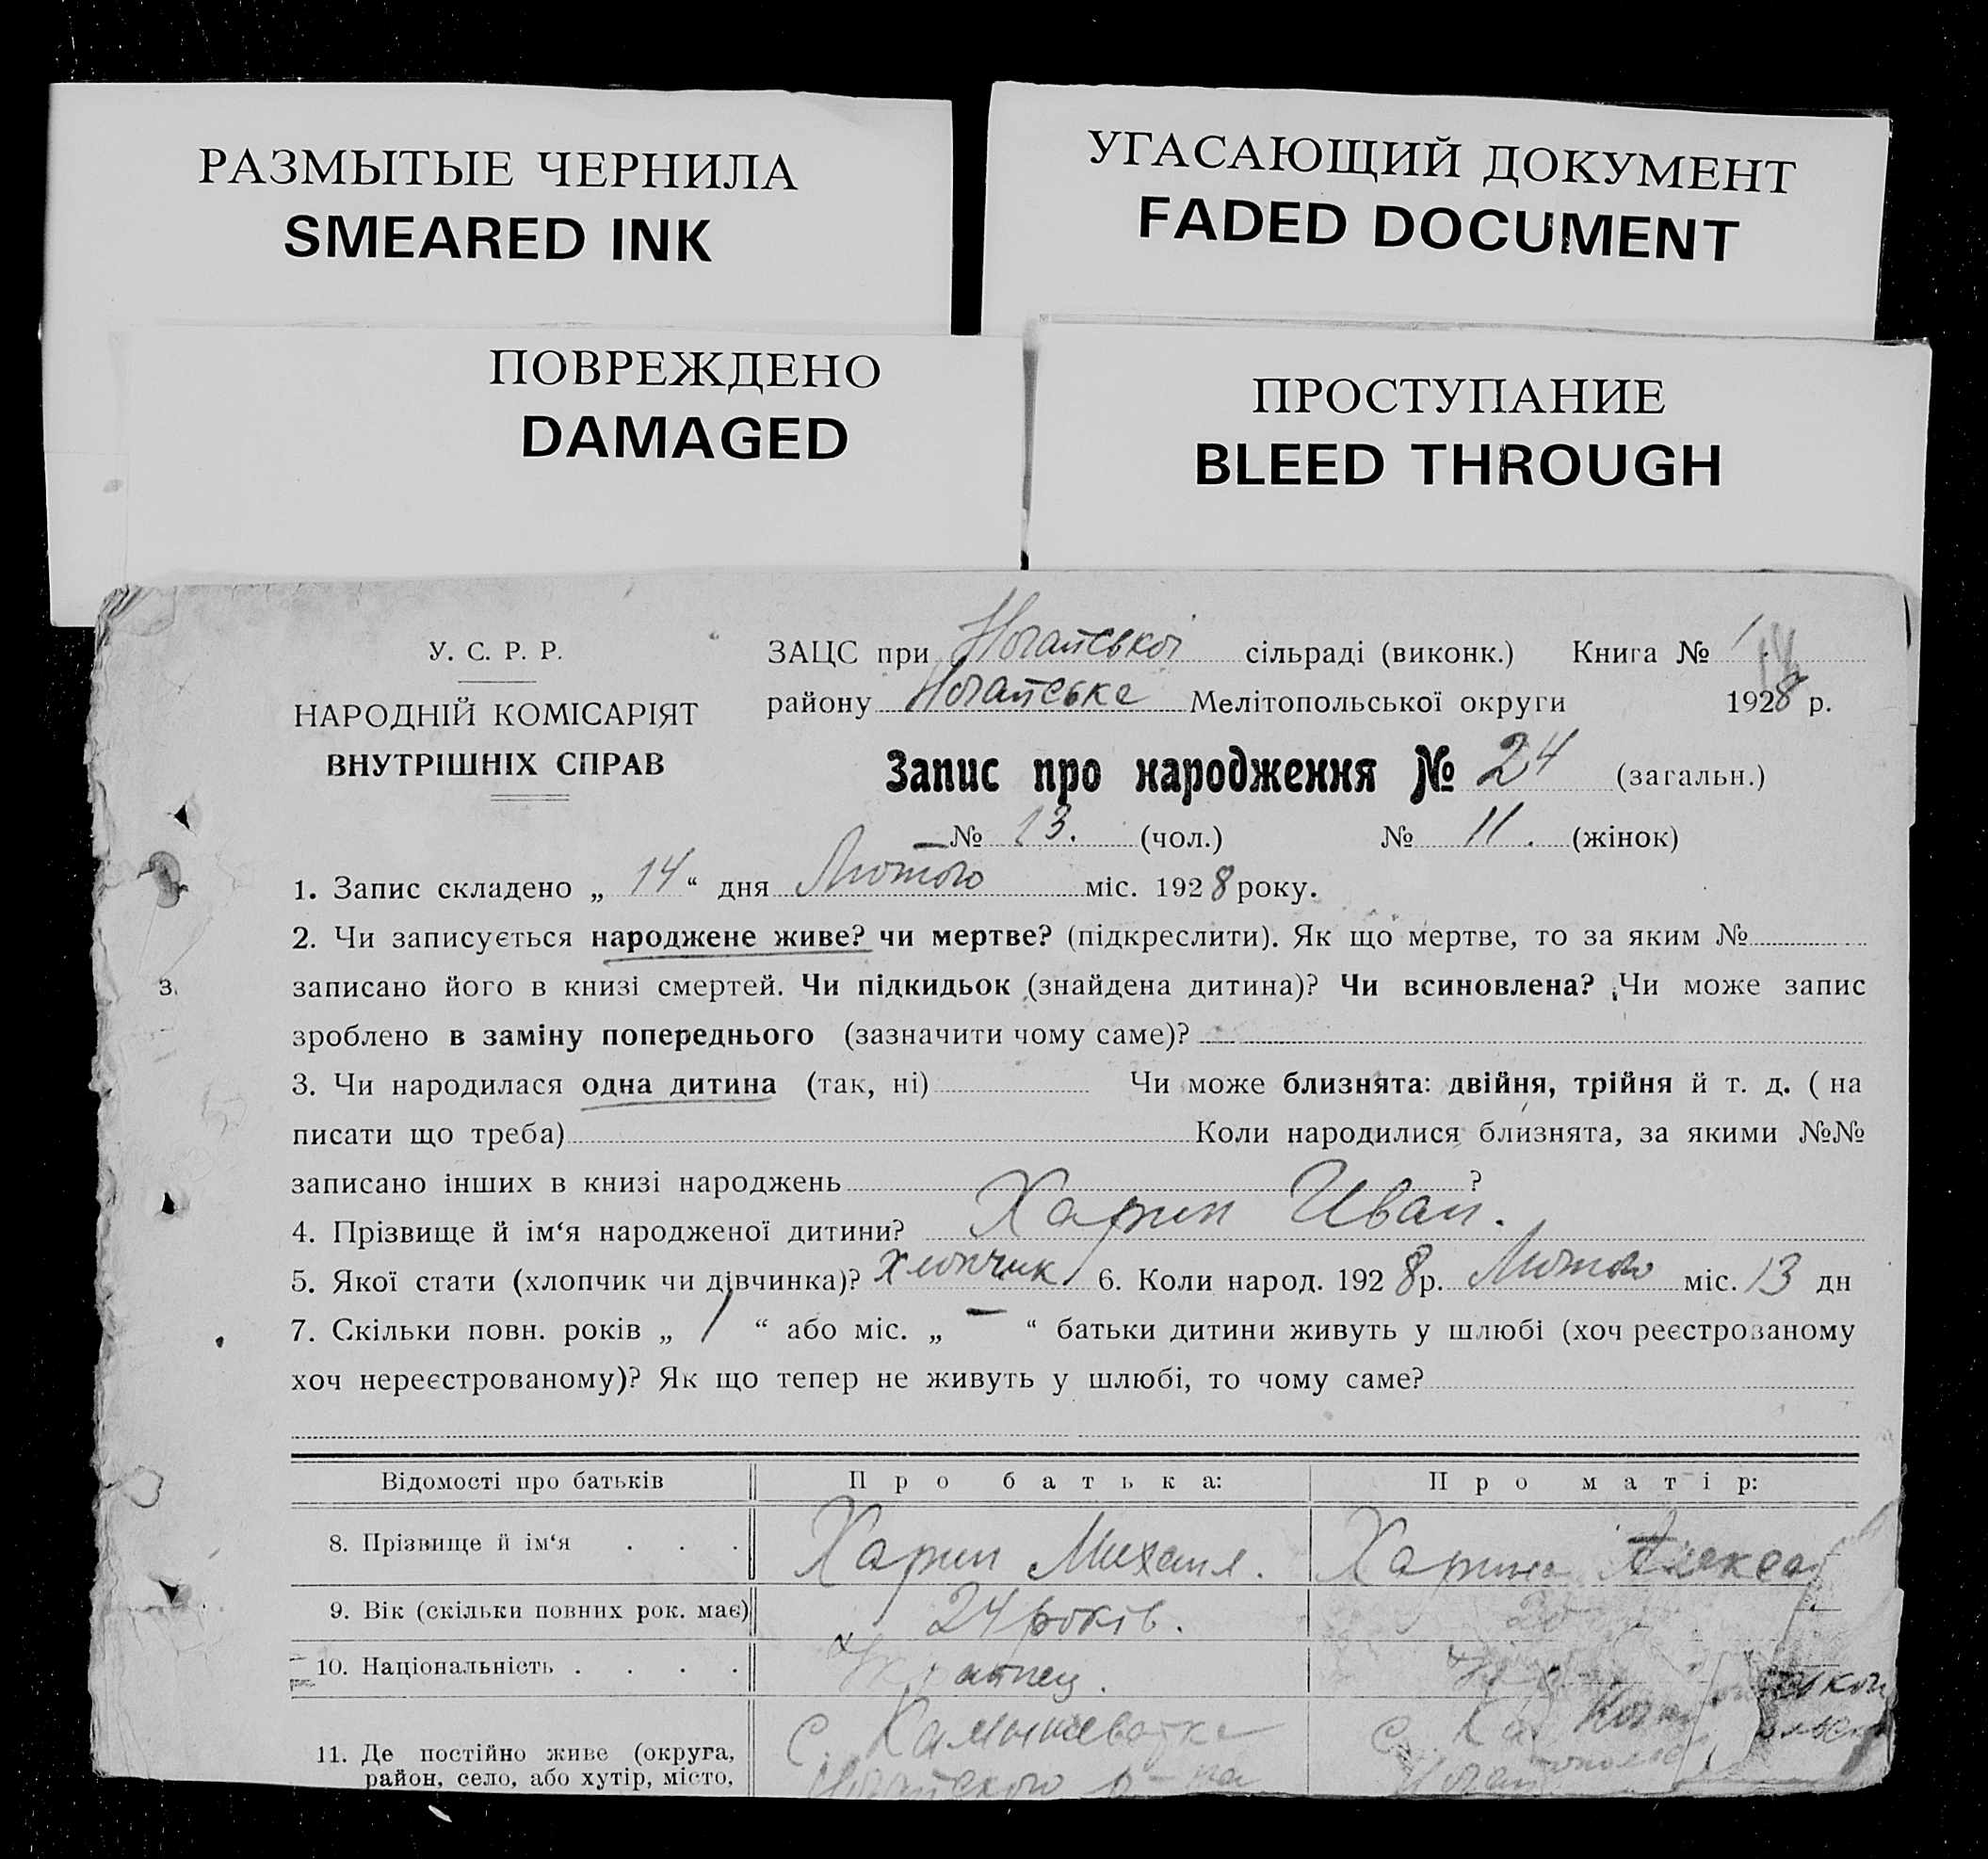 РАЗМЫТЫЕ ЧЕРНИЛА
SMEARED INK
УГАСАЮЩИЙ ДОКУМЕНТ
FADED DOCUMENT
ПОВРЕЖДЕНО
DAMAGED
ПРОСТУПАНИЕ
BLEED THROUGH
У. С. Р. Р.
НАРОДНІЙ КОМІСАРІЯТ
ВНУТРІШНІХ СПРАВ
ЗАЦС при Ногайської сільраді (виконк.) Книга № 1
району Ногайське Мелітопольської округи 1928 р.
Запис про народження № 24 (загальн.)
№ 13. (чол.) № 11. (жінок)
1. Запис складено „ 14 “ дня Лютого міс. 1928 року.
2. Чи записується народжене живе? чи мертве? (підкреслити). Як що мертве, то за яким №
записано його в книзі смертей. Чи підкидьок (знайдена дитина)? Чи всиновлена? Чи може запис
зроблено в заміну попереднього (зазначити чому саме)?
3. Чи народилася одна дитина (так, ні) Чи може близнята: двійня, трійня й т. д. ( на
писати що треба) Коли народилися близнята, за якими №№
записано інших в книзі народжень ?
4. Прізвище й ім‘я народженої дитини? Харин Иван.
5. Якої стати (хлопчик чи дівчинка)? Хлопчик 6. Коли народ. 1928 р. Лютого міс. 13 дн
7. Скільки повн. років „ 1 “ або міс. „ – “ батьки дитини живуть у шлюбі (хоч реєстрованому
хоч нереєстрованому)? Як що тепер не живуть у шлюбі, то чому саме?
Відомості про батьків Про батька: Про матір:
8. Прізвище й ім‘я . . . Харин Михаил. Харина
9. Вік (скільки повних рок. має) 24 років. 20
10. Національність . . . . Украпец.
11. Де постійно живе (округа, с. Камышеватка с.
район, село, або хутір, місто, Ногайского р-на